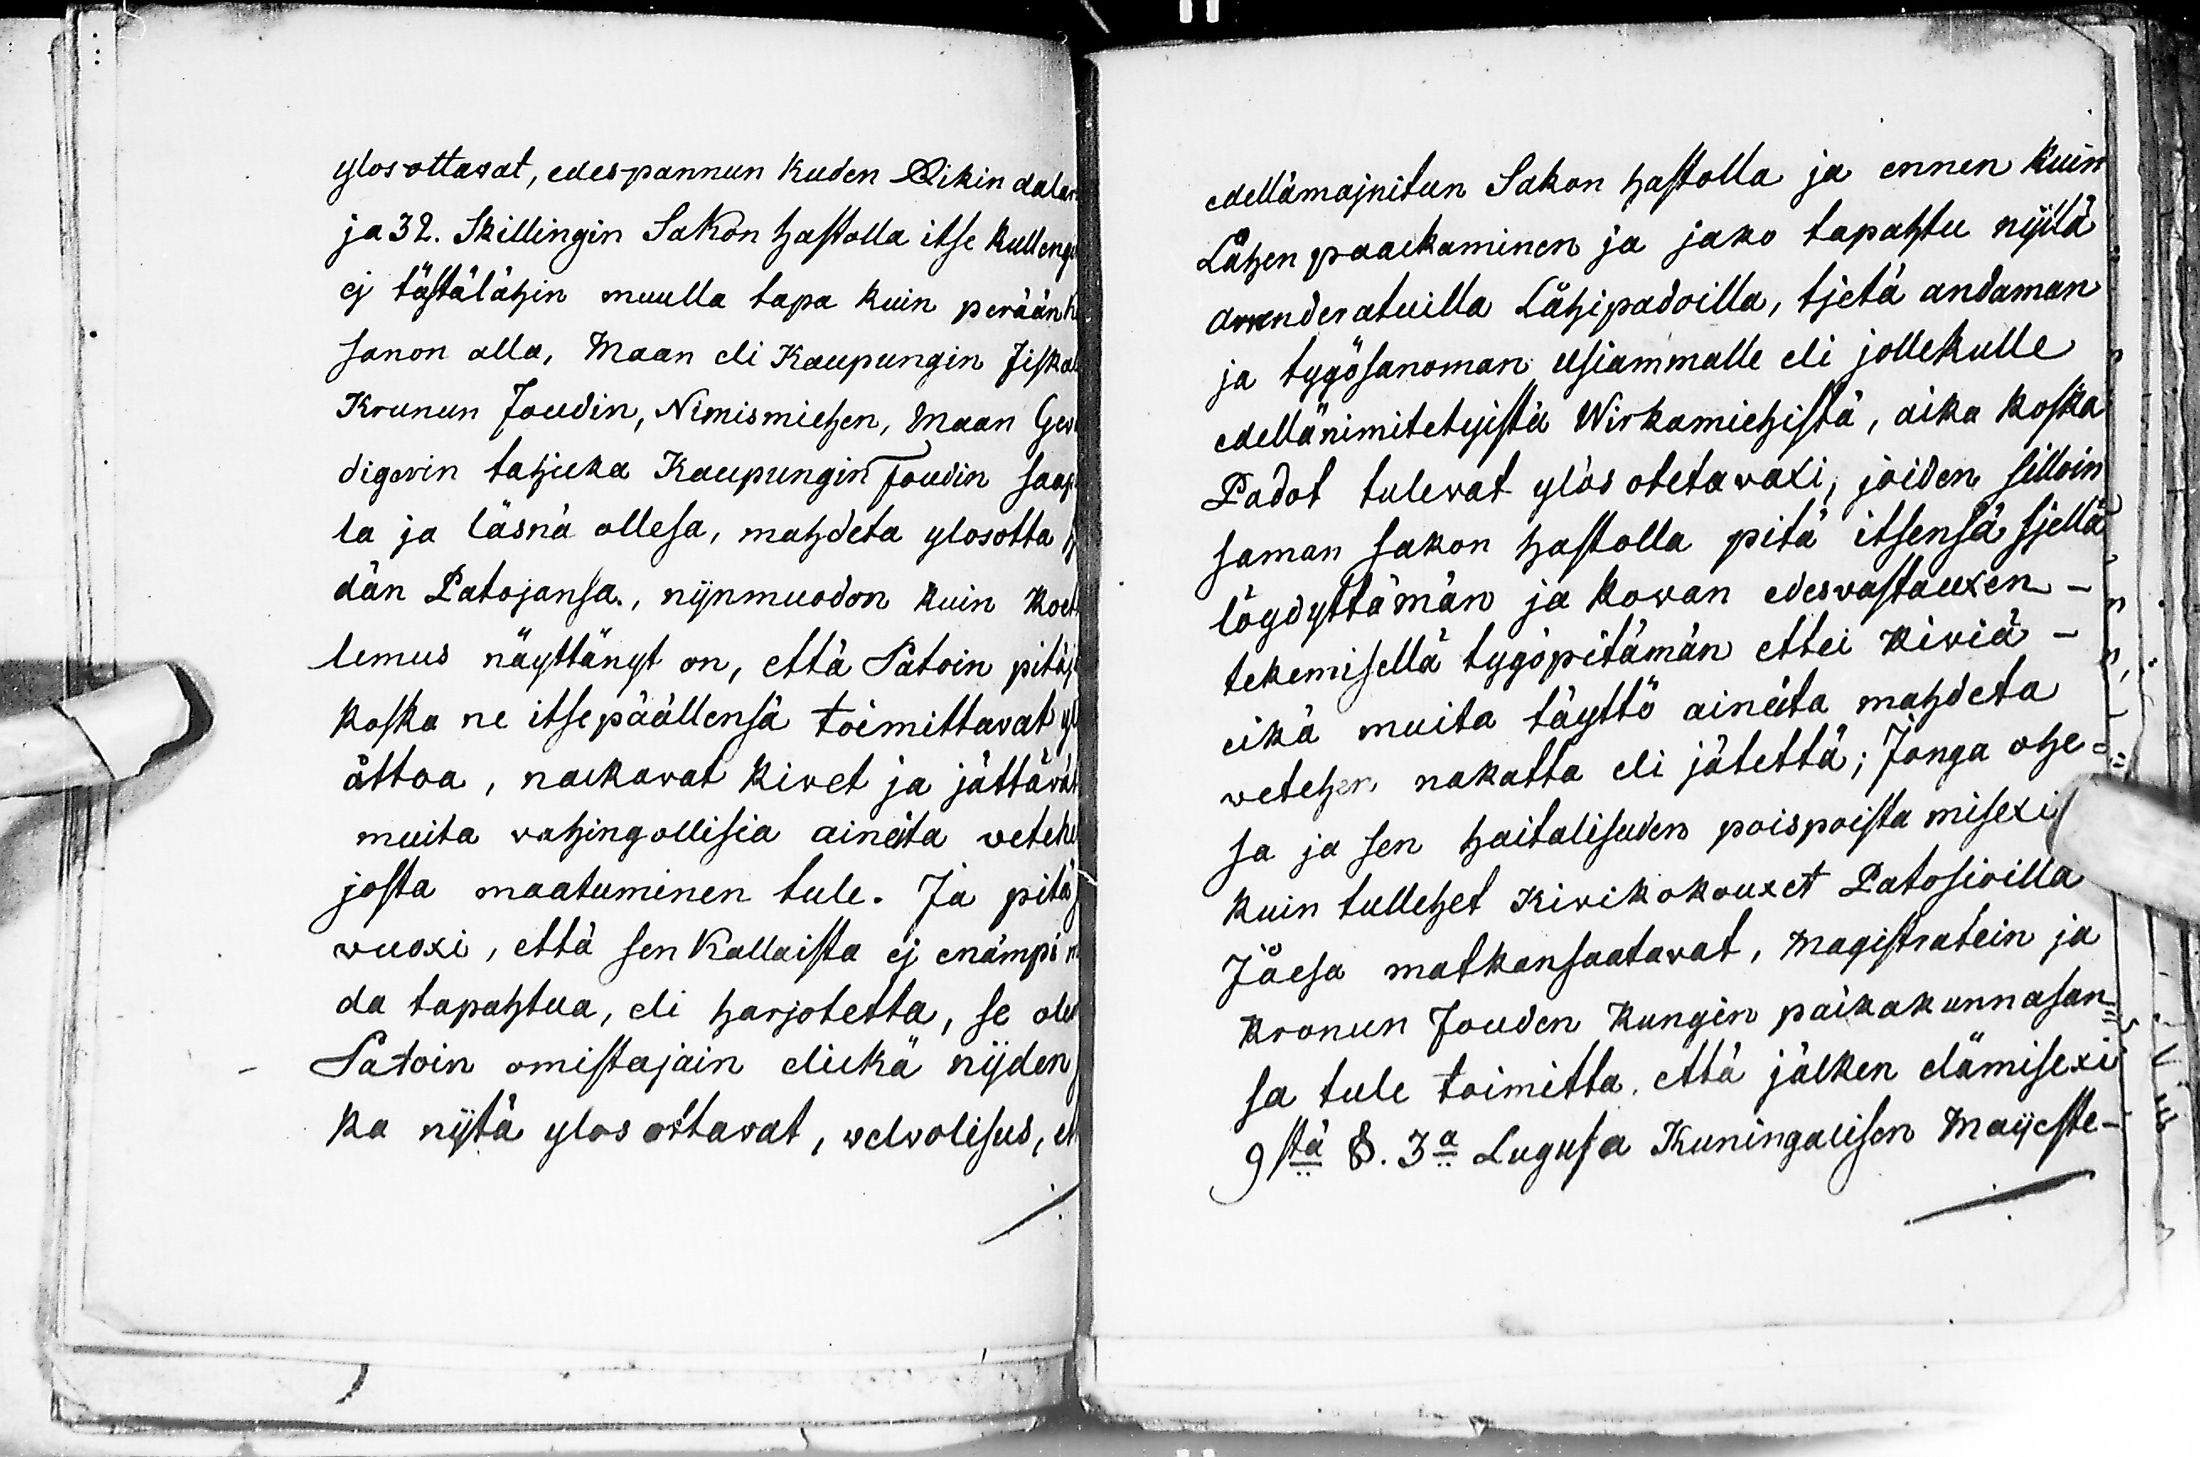 ylosottavat, edespannun kuden Rikin dalar
ja 32. Skillingin Sakon hastolla itse kulleng
ej tästälähin muulla tapa kuin perään
sanon alla, Maan eli Kaupungin Fiskal
Krunun Foudin, Nimismiehen, Maan Gew
digerin tahjuka Kaupungin Foudin saap
la ja läsnä ollesa, mahdeta ylosotta
dän Patojansa., nijnmuodon kuin koet
lemus näyttänyt on, että Patoin pitä
koska ne itsepäällensä toimittavat yl
åttoa, nackavat kivet ja jättävät
muita vahingollisia aineita vetehe
josta maatuminen tule. Ja pitä
wuoxi, että sen kallaista ej enämpi
da tapahtua, eli harjotetta, se ole
Patoin omistajain elickä nijden
ka nijtä ylos ottavat, welvolisus, et
edellämajnitun Sakon hastolla ja ennen kuin
Låhen paackaminen ja jako tapahtu nijtä
arrenderatuilla Låhipadoilla, tjetä andaman
ja tygösanoman usiammalle eli jollekulle
edellänimitetyistä Wirkamiehistä, aika koska
Padot tulevat ylös otetavaxi, joiden silloin
saman sakon hastolla pitä itsensä sjellä
löydyttämän ja kowan edesvastauxen -
tekemisellä tygöpitämän ettei kiviä -
eikä muita täyttö aineita mahdeta
vetehen nakatta eli jätettä; Jonga ohe-
sa ja sen haitalisuden poispoista misexi
kuin tullehet Kivikokouxet Patosioilla
Jöesa matkansaatavat, Magistratein ja
kronun Fouden kungin paikakunnasan
sa tule toimitta. että jälken elämisexi
9stä §. 3a Lugusa Kuningalisen Maijeste-